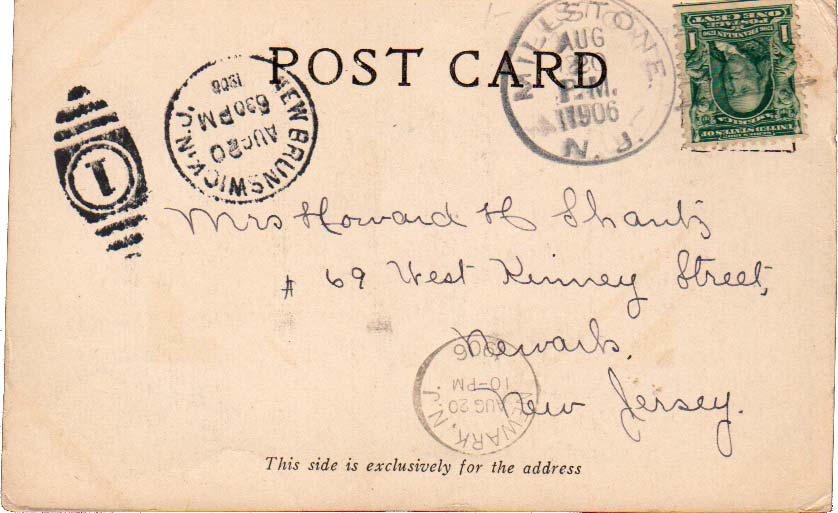 POST CARD
NEW BRUNSWICK, N.J.
AUG 20
630 PM
1906
1
MILLSTONE
AUG
20
P.M.
1906
N.J.
ONE CENT
POSTAGE
1 1
UNITED STATES OF
AMERICA
Mrs Howard H Shantz
# 69 West Kinney Street,
Newark,
New Jersey.
NEWARK, N.J.
AUG 20
10-PM
1906
This side is exclusively for the address